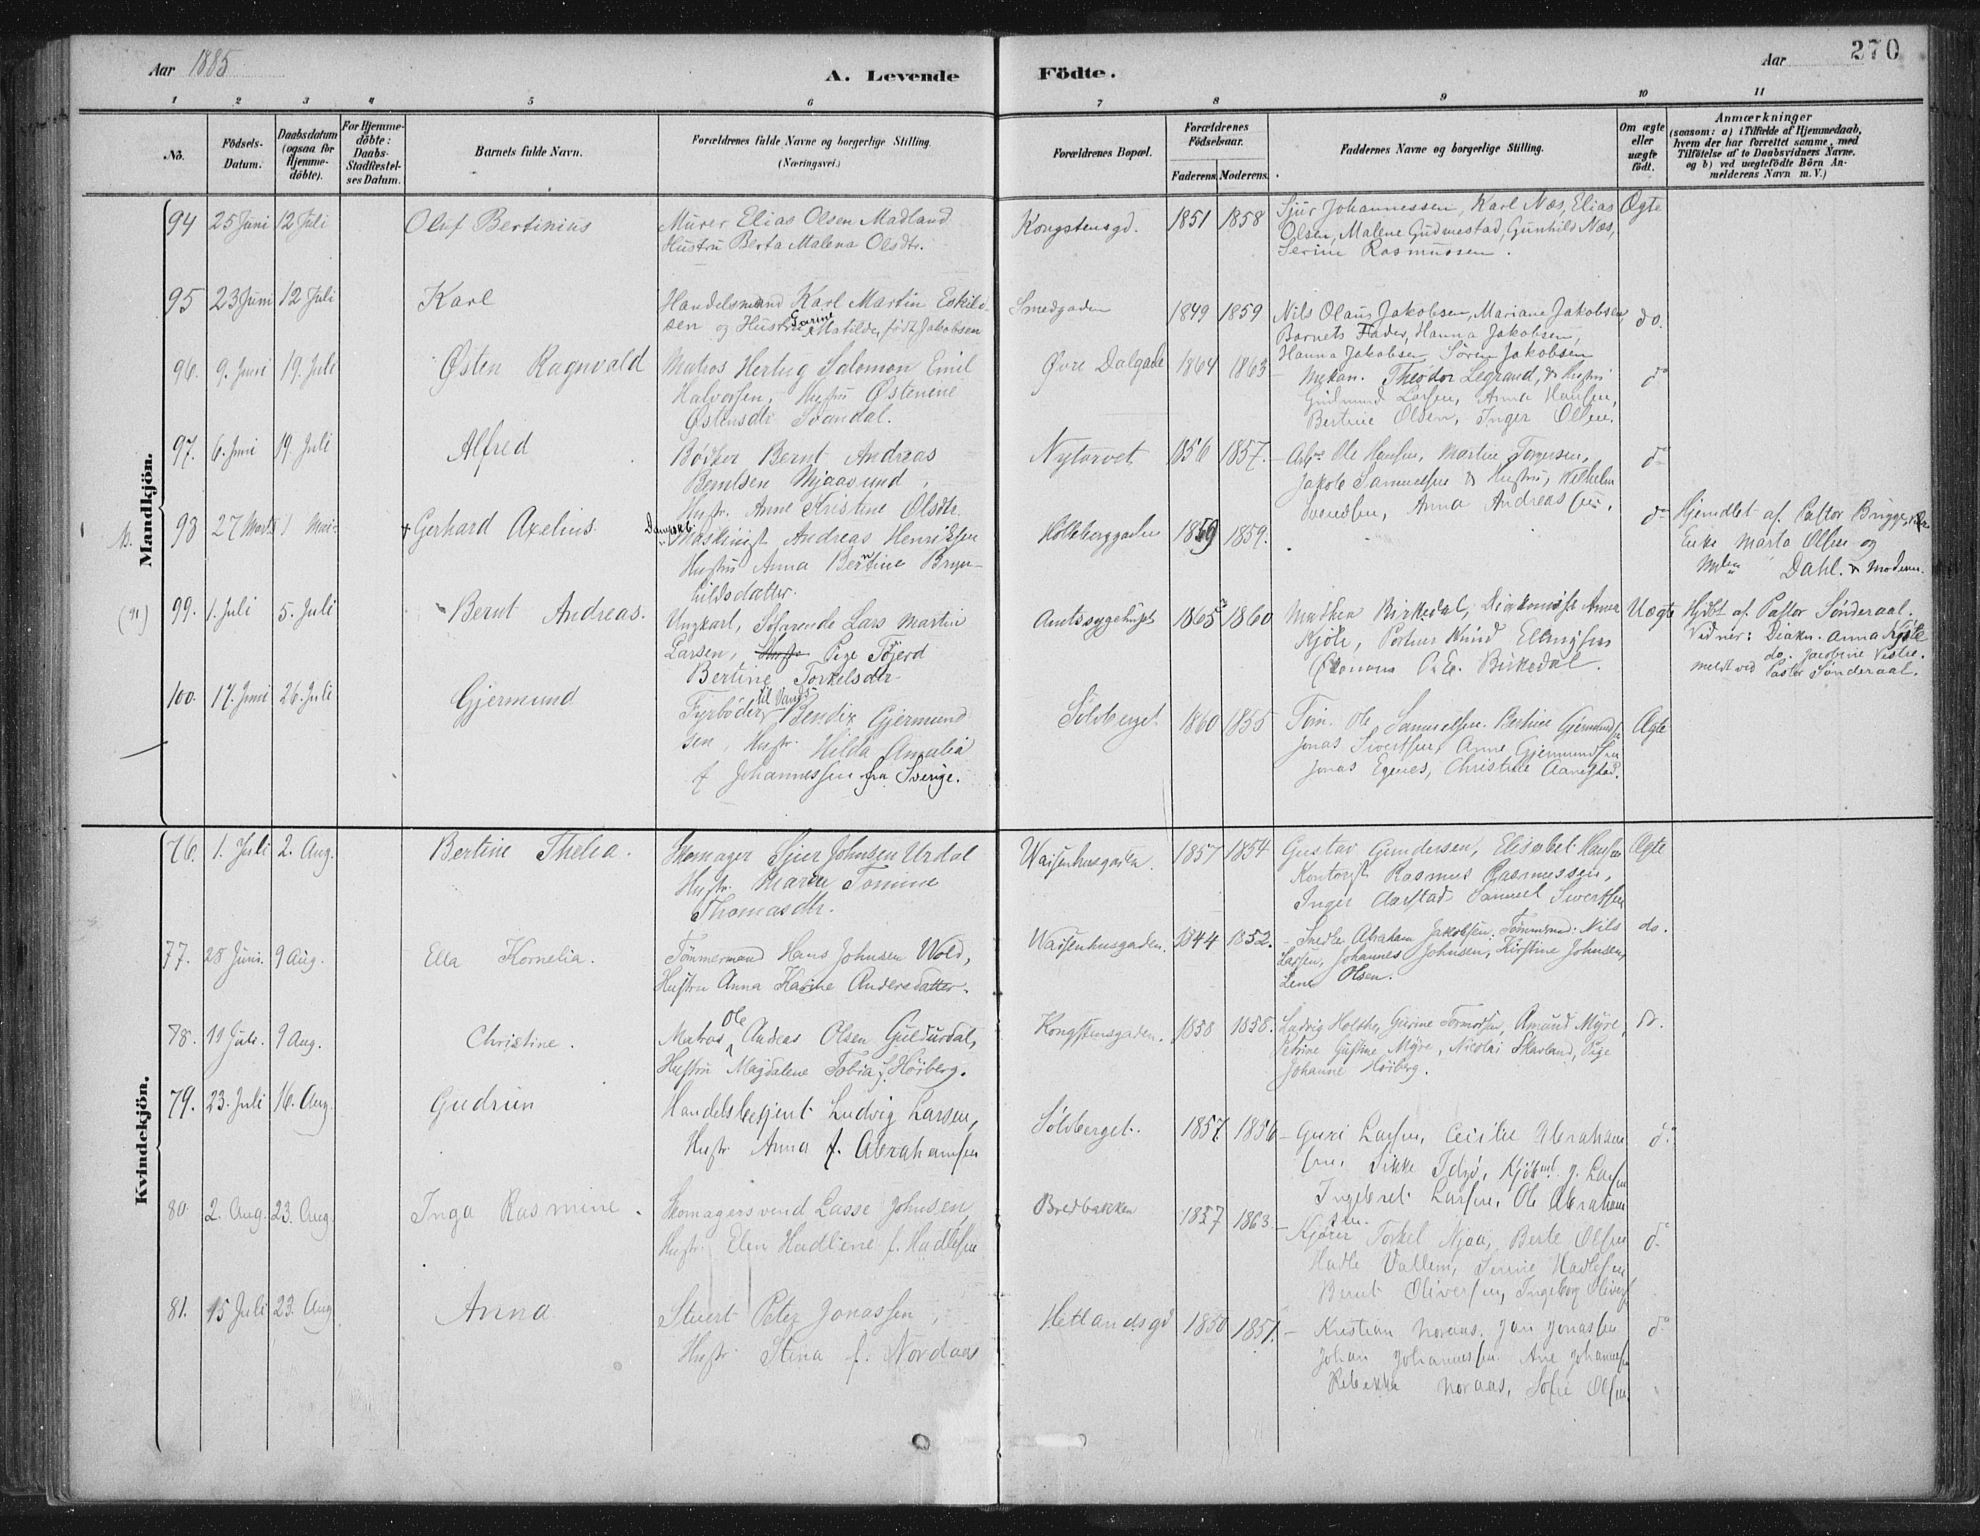 Aar 1885
A. Levende Födte.
Aar
270
1 2 3 4 5 6 7 8 9 10 11
No.
Födsels-Datum.
Daabsdatum (ogsaa for Hjemme-döbte).
For Hjemme-döbte: Daabs-Stadfæstel-ses Datum.
Barnets fulde Navn.
Forældrenes fulde Navne og borgerlige Stilling. (Næringsvei.)
Forældrenes Bopæl.
Forældrenes Födselsaar.
Faderens. Moderens.
Faddernes Navne og borgerlige Stilling.
Om ægte eller uægte födt.
Anmærkninger
(saasom: a) i Tilfælde af Hjemmedaab, hvem der har forrettet samme, med Tilföielse af to Daabsvidners Navne, og b) ved uægtefödte Börn An-melderens Navn m. V.)
Mandkjön.
94 25 Juni 12 Juli Oluf Bertinius
Murer Elias Olsen Madland
Hustru Berta Malena Olsdtr.
Kongstensgd. 1851 1858
Sjur Johannessen, Karl Næs, Elias
Olsen, Malene Gudmestad, Gunhild Næs,
Serine Rasmussen.
Ægte
95 23 Juni 12 Juli Karl
Handelsmand Karl Martin Eskild-
sen og Hustru Garine Matilde, født Jakobsen
Smedgaden 1849 1859
Nils Olaus Jakobsen, Mariane Jakobsen,
Barnets Fader, Hanna Jakobsen,
Hanna Jakobsen Sören Jakobsen
do.
96. 9. Juni 19. Juli Østen Ragnvald
Matros Hertug Salomon Emil
Halvorsen, Hustru Østenene
Østensdtr Svandal.
Øvre Dalgade 1864 1863
Mekan. Theodor Legrand, & Hustru
Gudmund Larsen, Anna Hansen,
Bertine Olsen, Inger Olsen.
do
97. 6. Juni 19. Juli Alfred
Bødker Bernt Andreas
Berntsen Mjaasund,
Hustr. Anne Kristine Olsdtr.
Nytorvet 1856 1857.
Arb. Ole Hansen, Martine Torgersen,
Jakob Samuelsen & Hustru, Vilhelm
Svendsen, Anna Andreassen,
do
98 27 Marts 1 Mai Gerhard Axelius.
Maskinist Andreas Henriksen
Hustru Anna Berntine Bryn-
hildsdatter.
Holbberggaden 1859 1859.
do
Hjemdbt af Pastor Brigge,
Enke Marta Olsen og
Dahl. & Moderen.
(91) 99. 1. Juli 5. Juli Bernt Andreas.
Ungkarl, Søfarende Lars Martin
Larsen, Pige Tøjerd
Bertine Torkelsdtr
Amtssygehuset 1865 1860
Madken Birkedal, Diakonisse Anna
Kjöle, Portner Knud Ellingsen
Økonom O. E. Birkedal.
Uægte
Hjdbt af Pastor Sønderaal.
Vidner: Diakn. Anna Kjöle
do. Jacobine Vestre.
meldt ved Pastor Sønderaal.
100. 17. Juni 26. Juli Gjermund
Fyrbøder til Vands Bendix Gjermund
sen, Hustr. Hilda Amalia
f. Johannessen fra Sverige.
Sölvberget 1860 1855
Töm. Ole Samuelsen. Bertine Gjermunds
Jonas Sivertsen, Anne Gjermundsen
Jonas Egenes, Christine Aanestad.
Ægte
Kvindekjön.
76. 1. Juli 2. Aug. Bertine Thelia.
Skomager Sjur Johnsen Urdal
Hustr. Maren Tomine
Thomasdtr.
Waisenhusgaden 1857 1854
Gustav Gundersen, Elisabet Hansen
Kontorist Rasmus Rasmussen,
Inger Aarstad Samuel Sivertsen
Ægte
77. 28 Juni. 9 Aug. Ella Kornelia.
Tømmermand Hans Johnsen Wold,
Hustru Anna Karine Andersdatter.
Waisenhusgaden. 1844 1852.
Snedk. Abraham Jakobsen. Tømmermd: Nils
Larsen, Johannes Johnsen, Kirstine Johnsen,
Lene Olsen.
do.
78. 11 Juli. 9 Aug. Christine.
Matros Ole Andreas Olsen Guldurdal,
Hustru Magdalene Tobia f. Höiberg.
Kongstensgaden. 1858 1858.
Ludvig Holthe, Gurine Tormodsen, Amund Myre,
Petrine Gustine Myre, Nicolai Skavland, Pige
Johanne Höiberg.
do.
79. 23. Juli 16. Aug. Gudrun
Handelsbetjent Ludvig Larsen,
Hustr. Anna f. Abrahamsen
Sölvberget. 1857 1856
Guri Larsen, Cecilie Abraham
sen, Sikke Idsø, Kjöbmd. J. Larsen
Ingebret Larsen, Ole Abraham
sen.
do
80. 2. Aug. 23. Aug. Inga Rasmine.
Skomagersvend Lasse Johnsen,
Hustr. Elen Hadline f. Hadlesen
Bredbakken 1857 1863
Kjører Torkel Njaa, Berte Olsen
Hadle Vallem, Serine Hadlesen
Bernt Oliversen, Ingeborg Olivers
do
81. 15 Juli 23. Aug Anna
Stuert Peter Jonassen,
Hustr. Stina f. Nordaas
Hetlandsgd 1850 1851.
Kristian Noraas. Jan Jonassen
Johan Johannessen. Ane Johannesen
Rebekka Noraas, Sofie Olsen
do